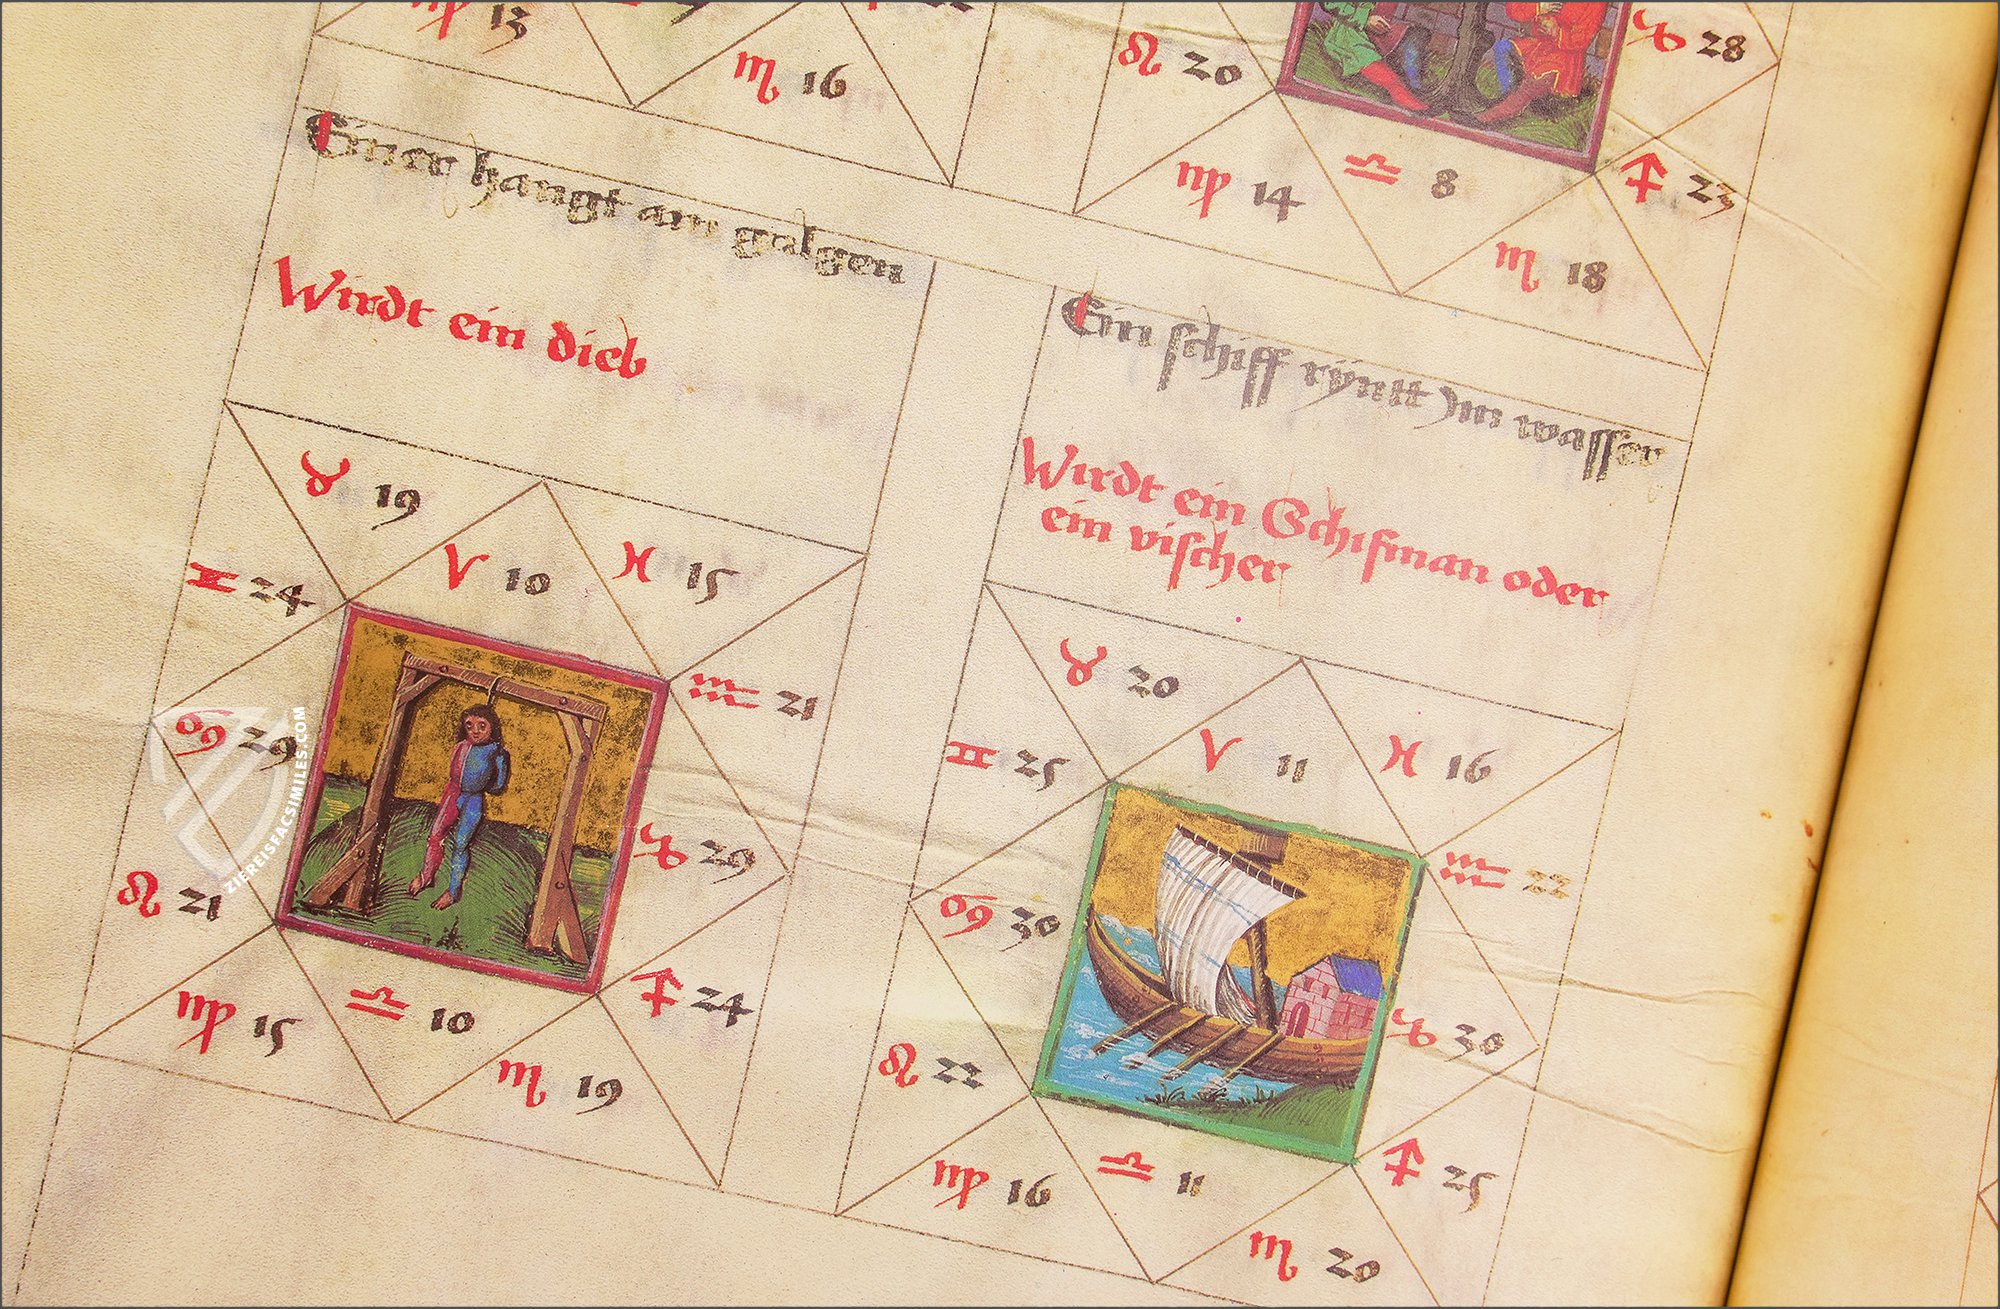 ♍ 13
♏ 16
♌ 20
♑ 28
♍ 14
♎ 8
♐ 23
♏ 18
Einer hangt an galgen
Wirdt ein dieb
♉ 19
♈ 10
♓ 15
♊ 24
♒ 21
♋ 29
♑ 29
♌ 21
♐ 24
♍ 15
♎ 10
♏ 19
Ein schiff rÿntt Jm wasser
Wirdt ein Schifman oder
ein vischer
♉ 20
♈ 11
♓ 16
♊ 25
♒ 22
♋ 30
♑ 30
♌ 22
♐ 25
♍ 16
♎ 11
♏ 20
ZIEREISFACSIMILES.COM